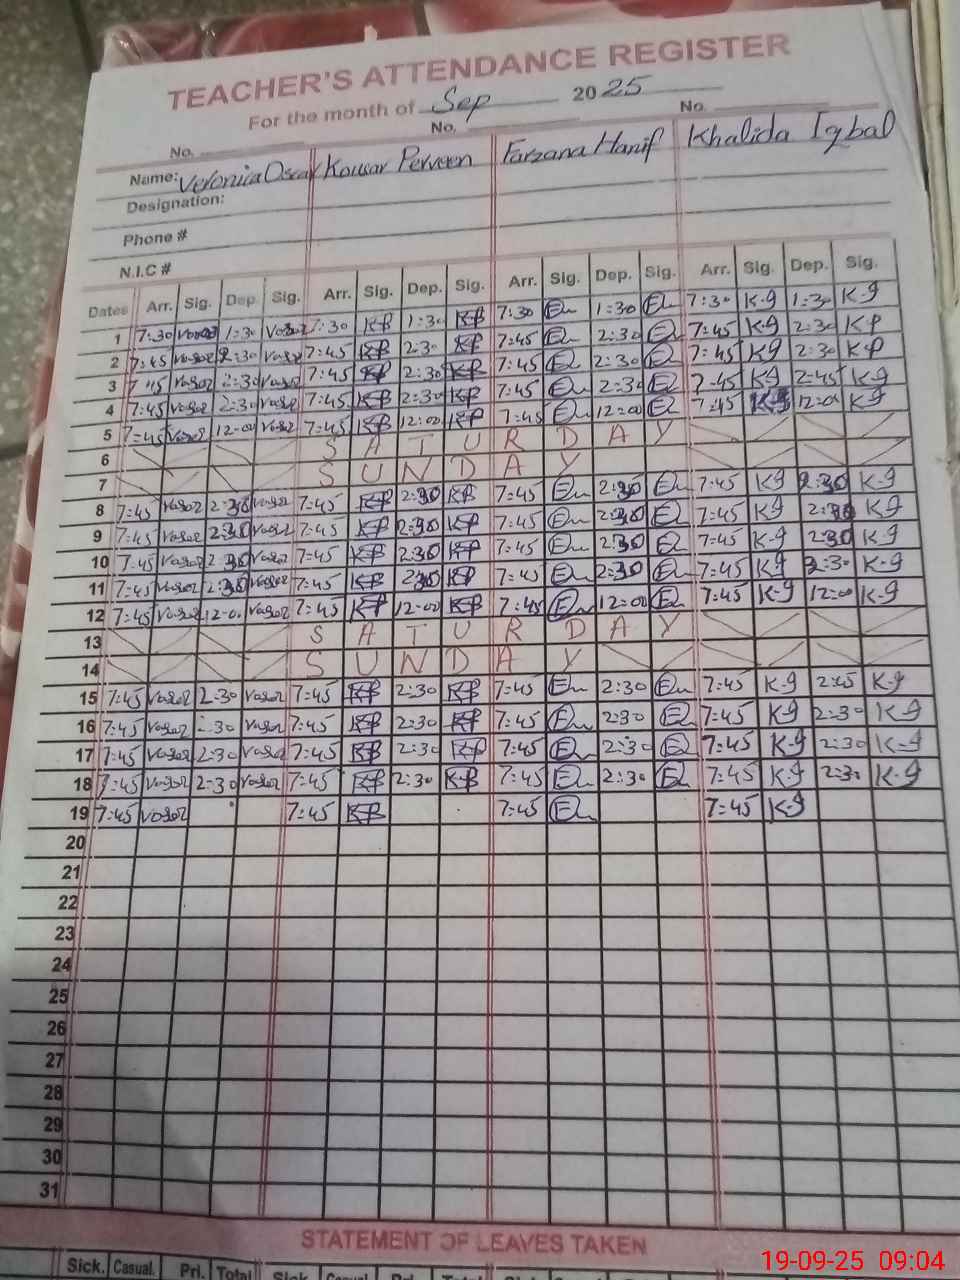 TEACHER'S ATTENDANCE REGISTER
For the month of Sep 2025
No. No. No.
Name: Veronica Oscar Kousar Perveen Farzana Hanif Khalida Iqbal
Designation:
Phone #
N.I.C #
Dates Arr. Sig. Dep. Sig. Arr. Sig. Dep. Sig. Arr. Sig. Dep. Sig. Arr. Sig. Dep. Sig.
1 7:30 1:30 7:30 KP 1:30 KP 7:30 1:30 7:30 K-g 1:30 K-g
2 7:45 2:30 7:45 KP 2:30 KP 7:45 2:30 7:45 K-g 2:30 K-g
3 7:45 2:30 7:45 KP 2:30 KP 7:45 2:30 7:45 K-g 2:30 K-g
4 7:45 2:30 7:45 KP 2:30 KP 7:45 2:30 7:45 K-g 2:45 K-g
5 7:45 12:00 7:45 KP 12:00 KP 7:45 12:00 7:45 K-g 12:00 K-g
6 SATURDAY
7 SUNDAY
8 7:45 2:30 7:45 KP 2:30 KP 7:45 2:30 7:45 K-g 2:30 K-g
9 7:45 2:30 7:45 KP 2:30 KP 7:45 2:30 7:45 K-g 2:30 K-g
10 7:45 2:30 7:45 KP 2:30 KP 7:45 2:30 7:45 K-g 2:30 K-g
11 7:45 2:30 7:45 KP 2:30 KP 7:45 2:30 7:45 K-g 2:30 K-g
12 7:45 12:00 7:45 KP 12:00 KP 7:45 12:00 7:45 K-g 12:00 K-g
13 SATURDAY
14 SUNDAY
15 7:45 2:30 7:45 KP 2:30 KP 7:45 2:30 7:45 K-g 2:45 K-g
16 7:45 2:30 7:45 KP 2:30 KP 7:45 2:30 7:45 K-g 2:30 K-g
17 7:45 2:30 7:45 KP 2:30 KP 7:45 2:30 7:45 K-g 2:30 K-g
18 7:45 2:30 7:45 KP 2:30 KP 7:45 2:30 7:45 K-g 2:30 K-g
19 7:45 7:45 KP 7:45 7:45 K-g
20
21
22
23
24
25
26
27
28
29
30
31
STATEMENT OF LEAVES TAKEN
Sick. Casual. Pri. Total Sick. Casual Pri. Total Sick. Casual.
19-09-25 09:04